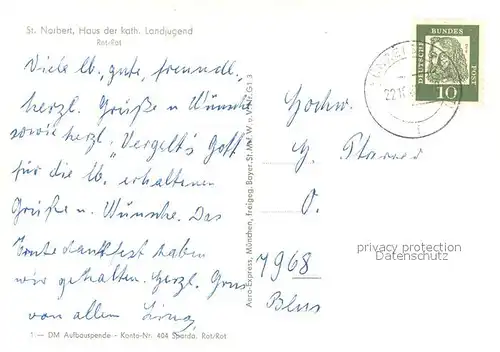 St. Norbert, Haus der kath. Landjugend
Rot/Rot
Viele lb., gute, freundl.,
herzl. Grüße u. Wünsche
sowie herzl. „Vergelt's Gott
für die lb. erhaltenen
Grüße u. Wünsche. Das
Erntedankfest haben
wir gehalten. Herzl. Grus
von allen
1.— DM Aufbauspende - Konto-Nr. 404 Sparda. Rot/Rot
Aero-Express, München, freigeg. Bayer. St. Min. W. u. V.
DEUTSCHE BUNDES POST
10
22.10.
Hochw.
H. Pfarrer
O.
7968
privacy protection
Datenschutz